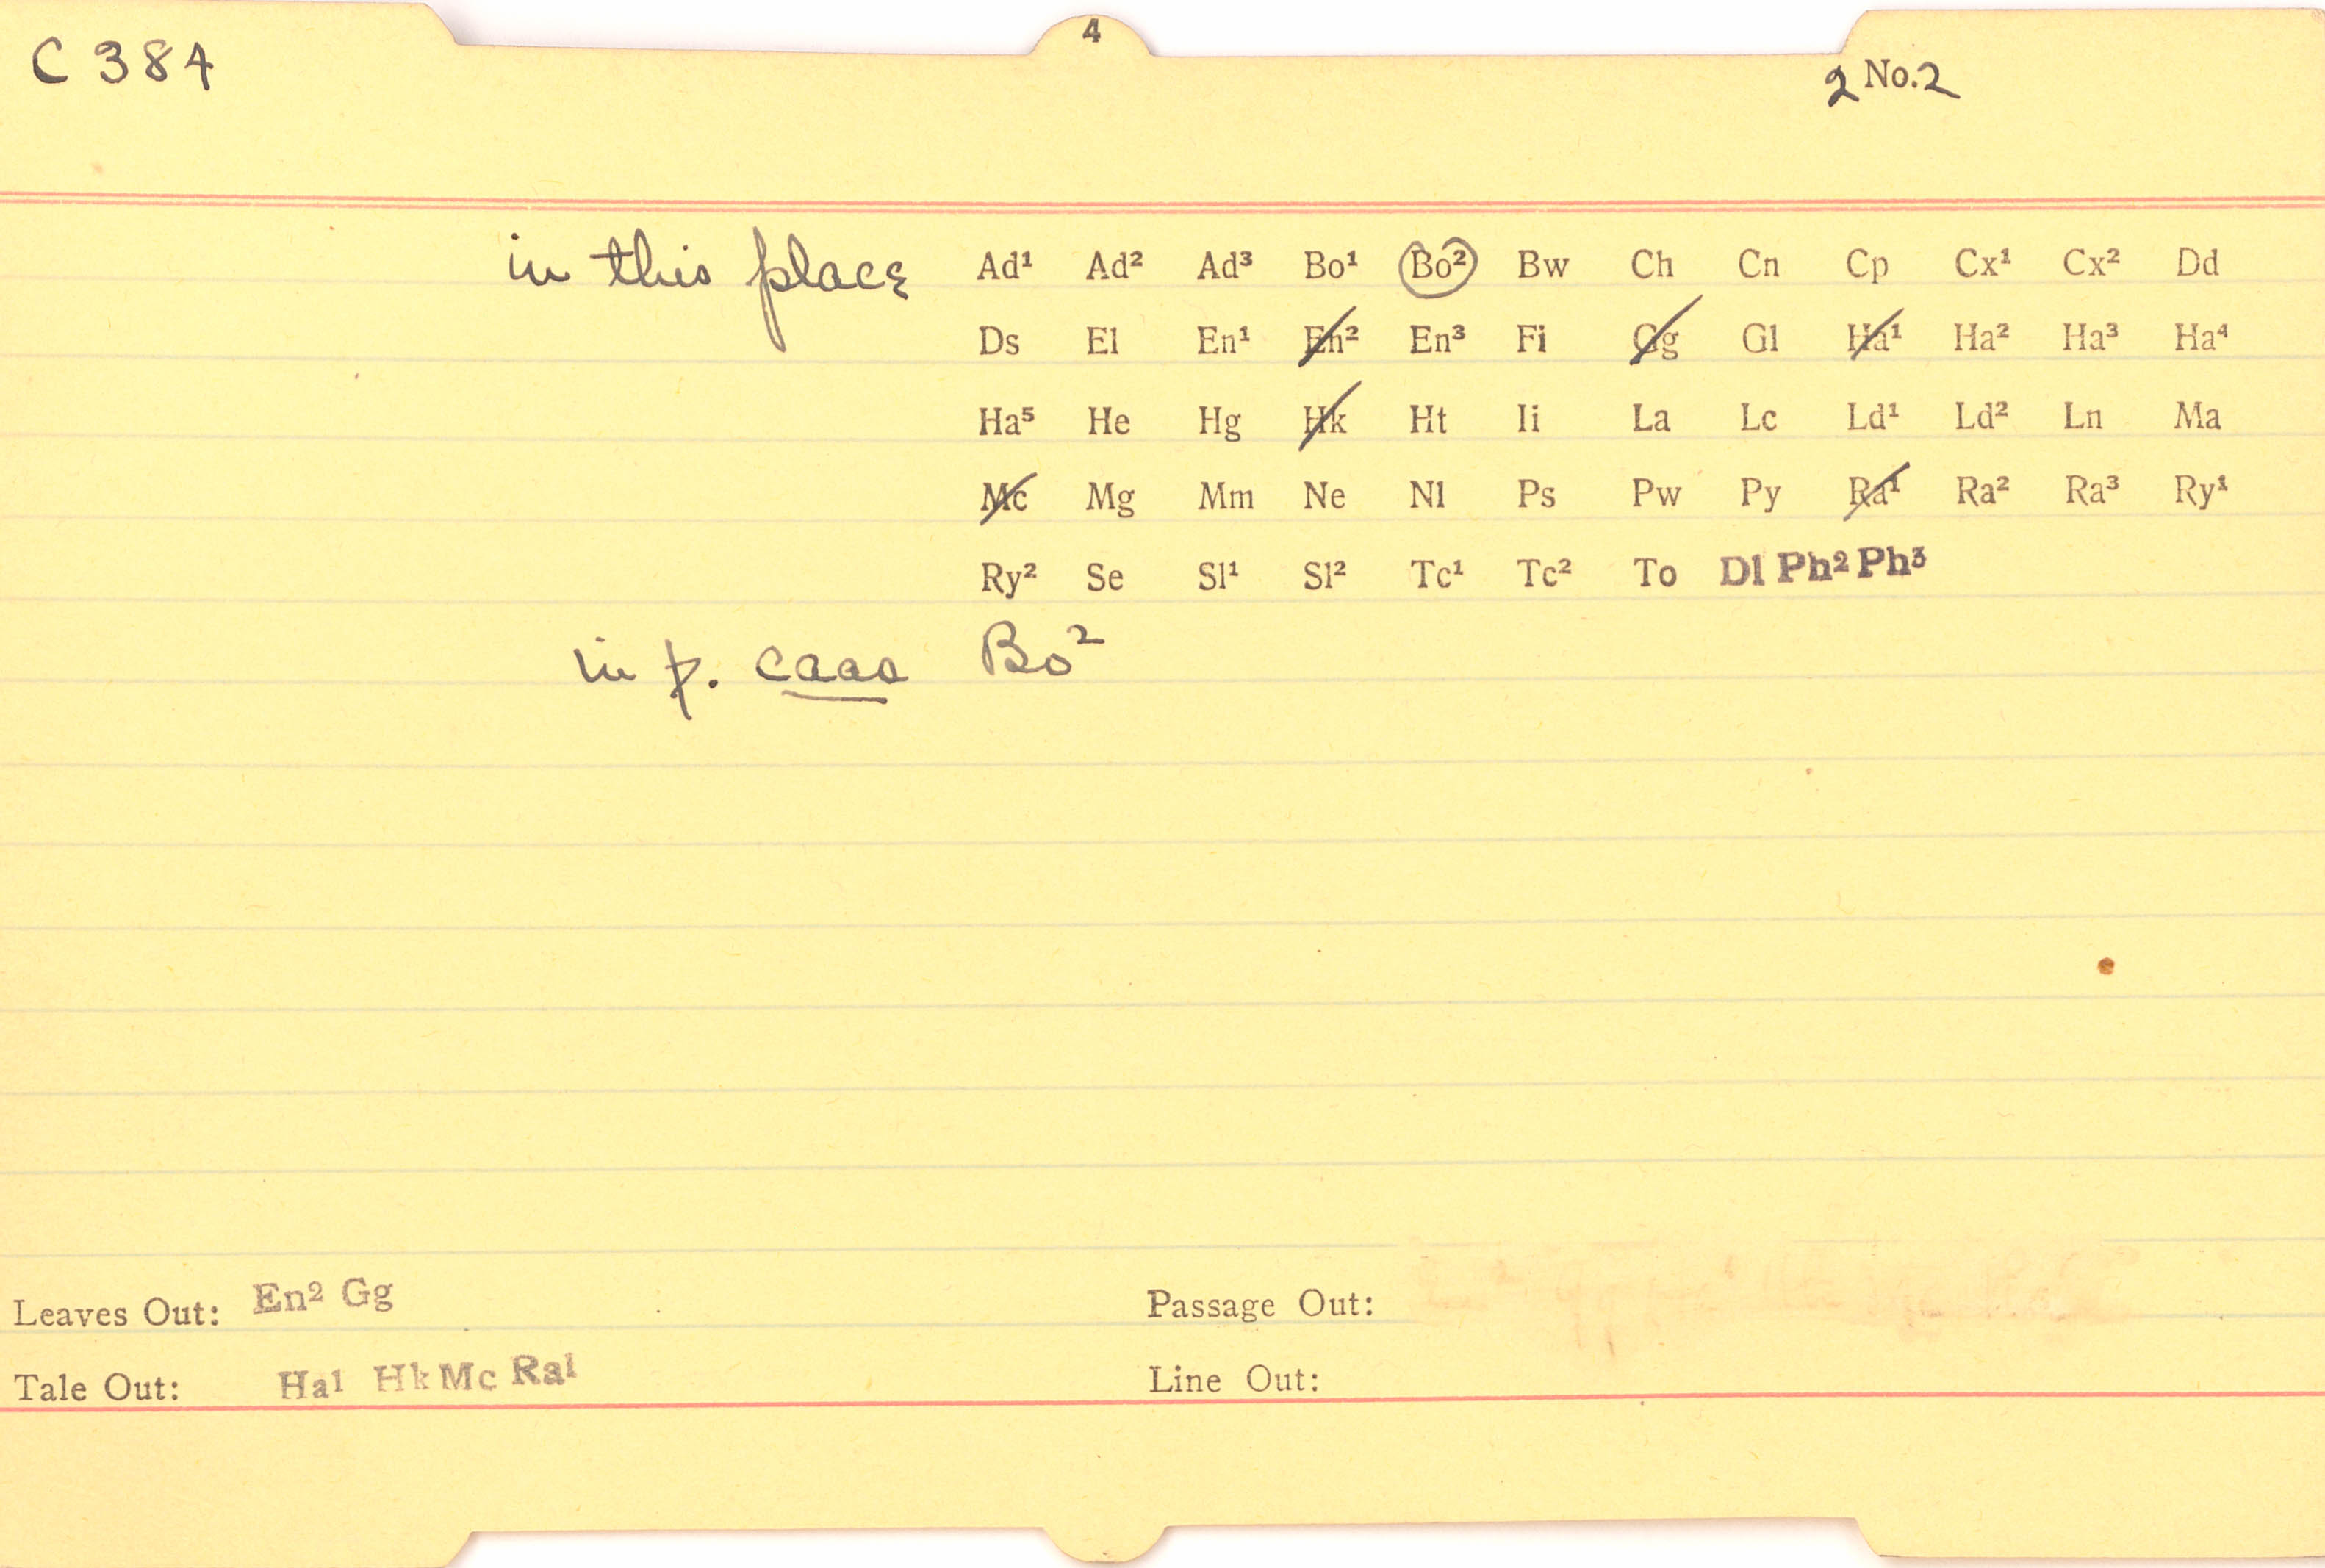 4
C 384
2 No. 2
in this place Ad¹ Ad² Ad³ Bo¹ Bo² Bw Ch Cn Cp Cx¹ Cx² Dd
Ds El En¹ En² En³ Fi Gg Gl Ha¹ Ha² Ha³ Ha⁴
Ha⁵ He Hg Hk Ht Ii La Lc Ld¹ Ld² Ln Ma
Mc Mg Mm Ne Nl Ps Pw Py Ra¹ Ra² Ra³ Ry¹
Ry² Se Sl¹ Sl² Tc¹ Tc² To Dl Ph² Ph³
in p. caas Bo²
Leaves Out: En² Gg Passage Out:
Tale Out: Ha¹ Hk Mc Ra¹ Line Out: